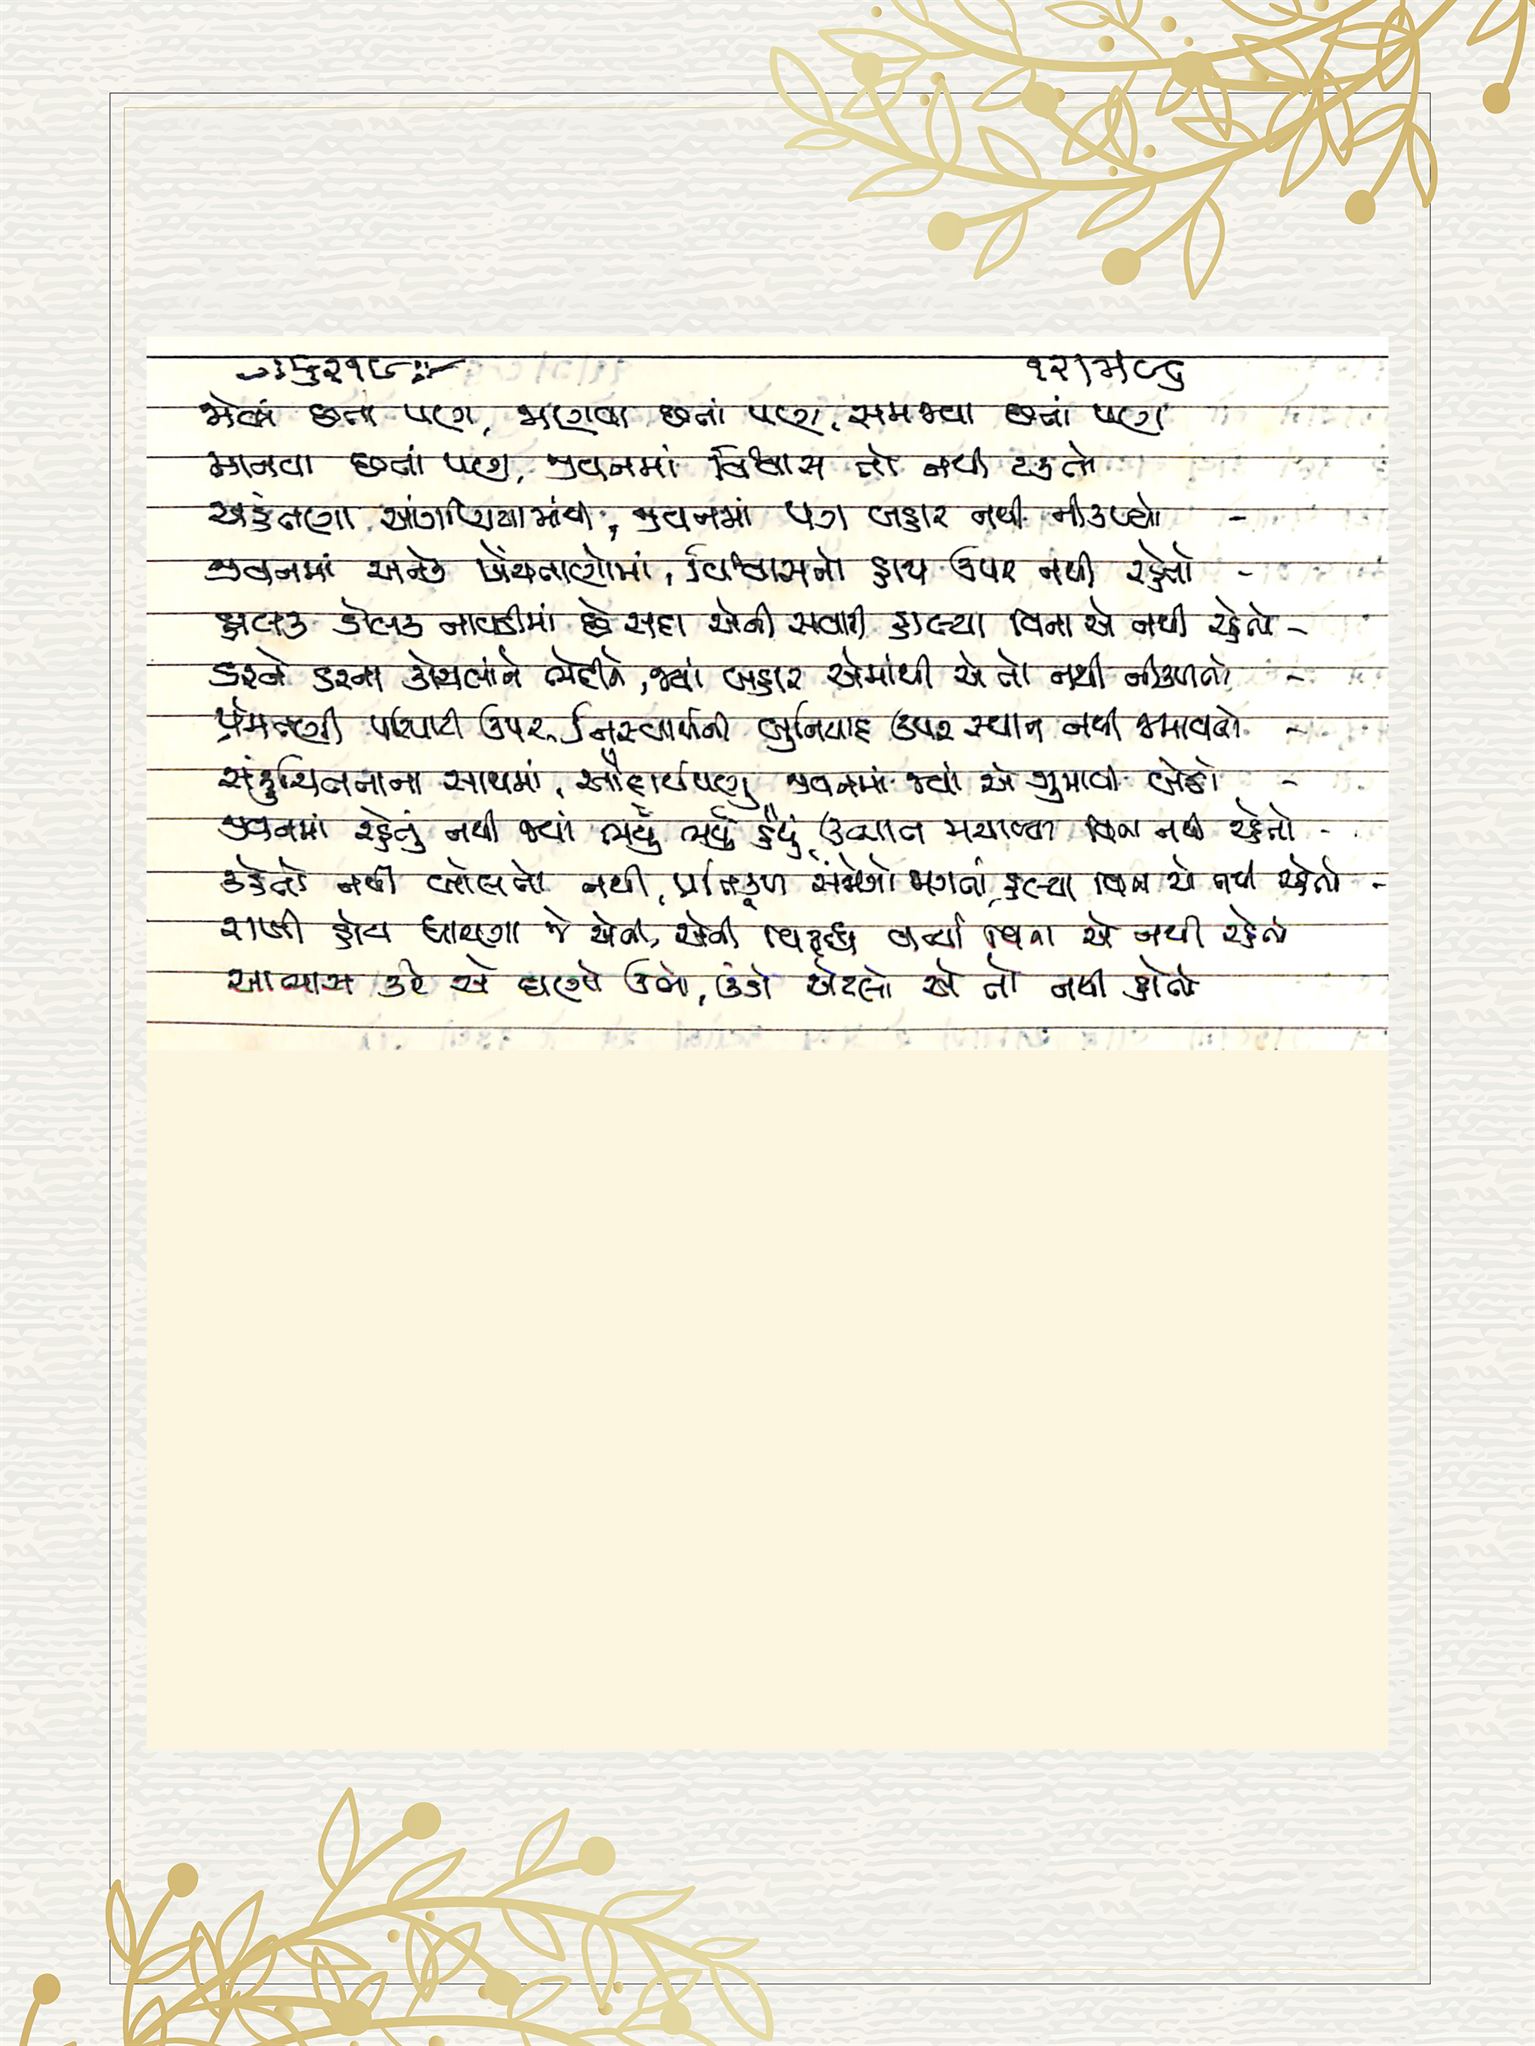 જોયા છતાં પણ, જાણવા છતાં પણ, સમજ્યા છતાં પણ
માનવા છતાં પણ, જીવનમાં વિશ્વાસ તો નથી ટકતો
અહંતણા આંગણિયામાંથી, જીવનમાં પગ બહાર નથી નીકળ્યો -
જીવનમાં અનેક ખેંચતાણોમાં, વિશ્વાસનો હાથ ઉપર નથી રહેતો -
ઝૂલક ડોલક નાવડીમાં છે સદા એની સવારી હાલ્યા વિના એ નથી રહેતો -
ડરને ડરના કોચલાને ભેદીને, જ્યાં બહાર એમાંથી એ તો નથી નીકળતો -
પ્રેમતણી પરિપાટી ઉપર, નિસ્વાર્થની બુનિયાદ ઉપર સ્થાન નથી જમાવતો -
સંકુચિતતાના સાથમાં, ઔદાર્યપણું જીવનમાં જ્યાં એ ગુમાવી બેઠો -
જીવનમાં રહેતું નથી જ્યાં ભર્યું ભર્યું હૈયું, ઉત્પાત મચાવ્યા વિના નથી રહેતો -
કહેતો નથી બોલતો નથી, પ્રતિકૂળ સંજોગો જાગતાં, હલ્યા વિના એ નથી રહેતો -
રાખી હોય ધારણા જે એની, એની વિરૂદ્ધ વર્ત્યા વિના એ નથી રહેતો
આભાસ કરે એ ઘણો ઉભો, ઉંડો એટલો એ તો નથી હોતો